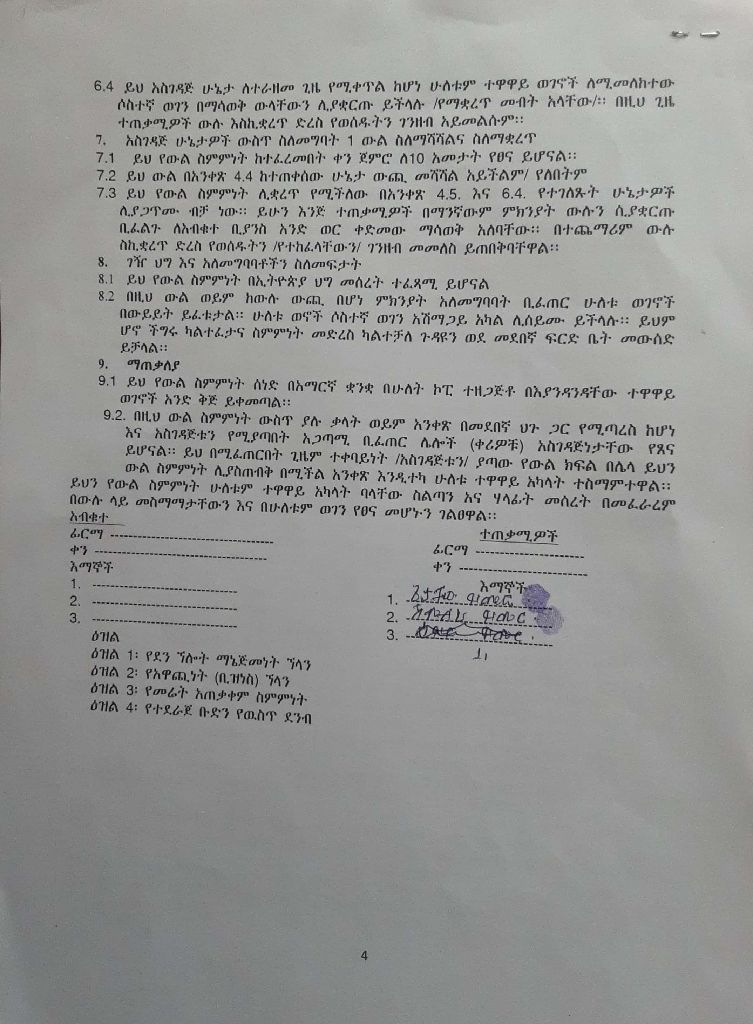 6.4 ይህ አስገዳጅ ሁኔታ ለተራዘመ ጊዜ የሚቀጥል ከሆነ ሁለቱም ተዋዋይ ወገኖች ለሚመለከተው
ሶስተኛ ወገን በማሳወቅ ውላቸውን ሊያቋርጡ ይችላሉ /የማቋረጥ መብት አላቸው/። በዚህ ጊዜ
ተጠቃሚዎች ውሉ እስኪቋረጥ ድረስ የወሰዱትን ገንዘብ አይመልሱም።
7. አስገዳጅ ሁኔታዎች ውስጥ ስለመግባት 1 ውል ስለማሻሻልና ስለማቋረጥ
7.1 ይህ የውል ስምምነት ከተፈረመበት ቀን ጀምሮ ለ10 አመታት የፀና ይሆናል።
7.2 ይህ ውል በአንቀጽ 4.4 ከተጠቀሰው ሁኔታ ውጪ መሻሻል አይችልም/ የለበትም
7.3 ይህ የውል ስምምነት ሊቋረጥ የሚችለው በአንቀጽ 4.5. እና 6.4. የተገለጹት ሁኔታዎች
ሲያጋጥሙ ብቻ ነው። ይሁን እንጅ ተጠቃሚዎች በማንኛውም ምክንያት ውሉን ሲያቋርጡ
ቢፈልጉ ለአብቁተ ቢያንስ አንድ ወር ቀድመው ማሳወቅ አለባቸው። በተጨማሪም ውሉ
ስኪቋረጥ ድረስ የወሰዱትን /የተከፈላቸውን/ ገንዘብ መመለስ ይጠበቅባቸዋል።
8. ገዥ ህግ እና አለመግባባቶችን ስለመፍታት
8.1 ይህ የውል ስምምነት በኢትዮጵያ ህግ መሰረት ተፈጻሚ ይሆናል
8.2 በዚህ ውል ወይም ከውሉ ውጪ በሆነ ምክንያት አለመግባባት ቢፈጠር ሁለቱ ወገኖች
በውይይት ይፈቱታል። ሁለቱ ወኖች ሶስተኛ ወገን አሸማጋይ አካል ሊሰይሙ ይችላሉ። ይህም
ሆኖ ችግሩ ካልተፈታና ስምምነት መድረስ ካልተቻለ ጉዳዩን ወደ መደበኛ ፍርድ ቤት መውሰድ
ይቻላል።
9. ማጠቃለያ
9.1 ይህ የውል ስምምነት ሰነድ በአማርኛ ቋንቋ በሁለት ኮፒ ተዘጋጅቶ በእያንዳንዳቸው ተዋዋይ
ወገኖች አንድ ቅጅ ይቀመጣል።
9.2. በዚህ ውል ስምምነት ውስጥ ያሉ ቃላት ወይም አንቀጽ በመደበኛ ህጉ ጋር የሚጣረስ ከሆነ
እና አስገዳጅቱን የሚያጣበት አጋጣሚ ቢፈጠር ሌሎች (ቀሪዎቹ) አስገዳጅነታቸው የጸና
ይሆናል። ይህ በሚፈጠርበት ጊዜም ተቀባይነት /አስገዳጅቱን/ ያጣው የውል ክፍል በሌላ ይህን
ውል ስምምነት ሊያስጠብቅ በሚችል አንቀጽ እንዲተካ ሁለቱ ተዋዋይ አካላት ተስማምተዋል።
ይህን የውል ስምምነት ሁለቱም ተዋዋይ አካላት ባላቸው ስልጣን እና ሃላፊት መሰረት በመፈራረም
በውሉ ላይ መስማማታቸውን እና በሁለቱም ወገን የፀና መሆኑን ገልፀዋል።
አብቁተ
ተጠቃሚዎች
ፊርማ
ፊርማ
ቀን
ቀን
እማኞች
እማኞች
1.
1.
2.
2.
3.
3.
ዕዝል
ዕዝል 1፡ የደን ኘሎት ማኔጅመነት ኘላን
ዕዝል 2፡ የአዋጪነት (ቢዝነስ) ኘላን
ዕዝል 3፡ የመሬት አጠቃቀም ስምምነት
ዕዝል 4፡ የተደራጀ ቡድን የዉስጥ ደንብ
4